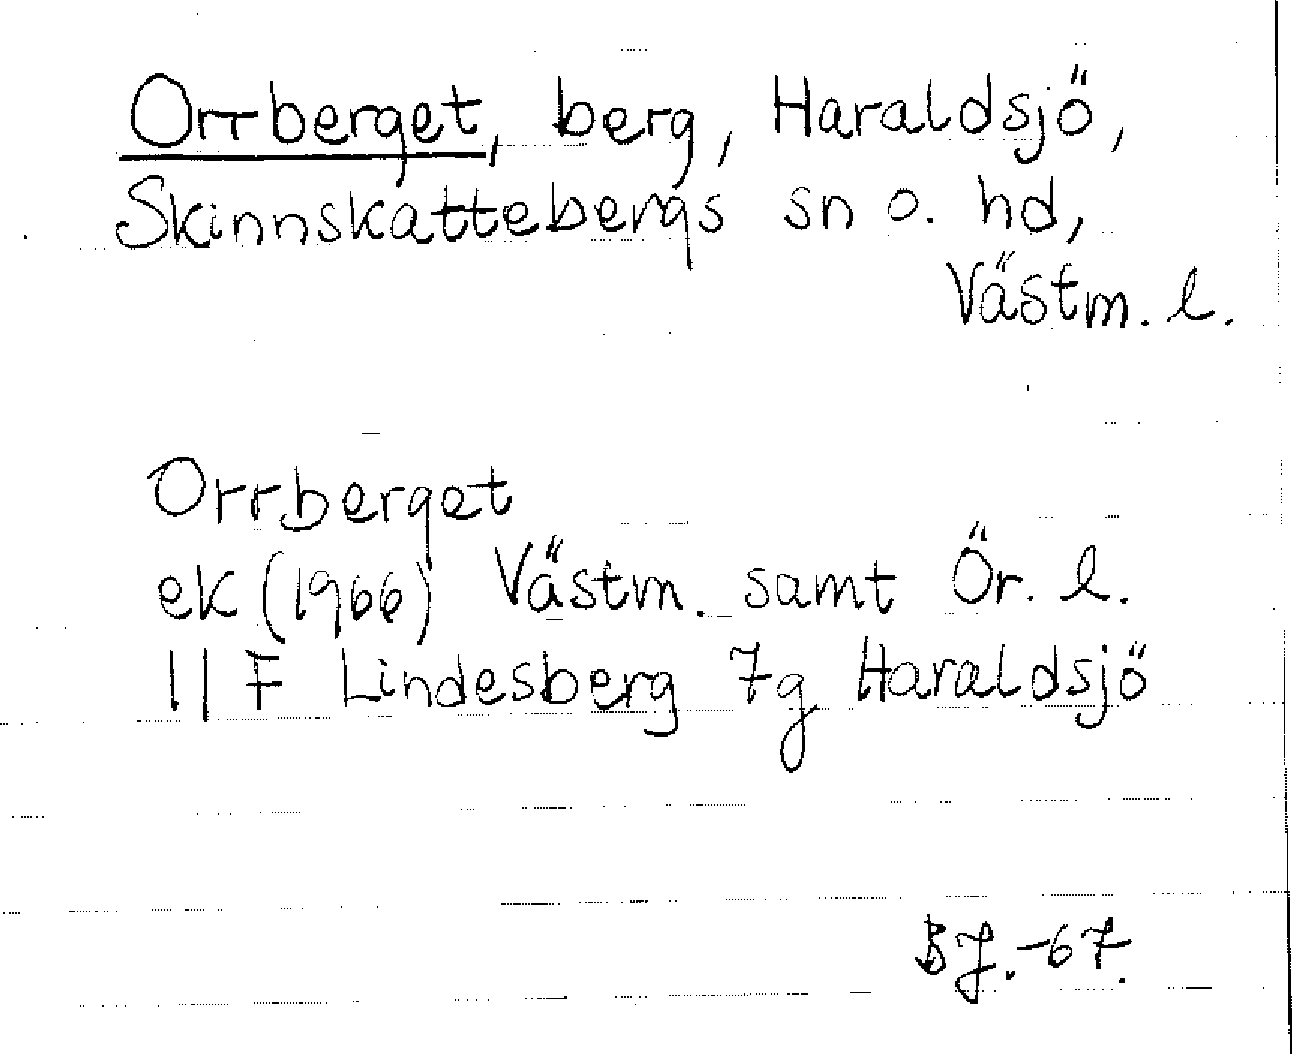 Orrberget, berg, Haraldsjö,
Skinnskattebergs sn o. hd,
Västm. l.
Orrberget
ek (1966) Västm. samt Ör. l.
11 F Lindesberg 7g Haraldsjö
BJ. -67.